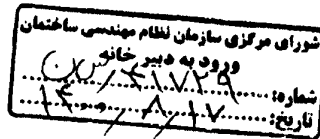 شورای مرکزی سازمان نظام مهندسی ساختمان
ورود به دبیر خانه
شماره: ۳۱۷۲۹/ش ن
تاریخ: ۱۴۰۰/۸/۱۷